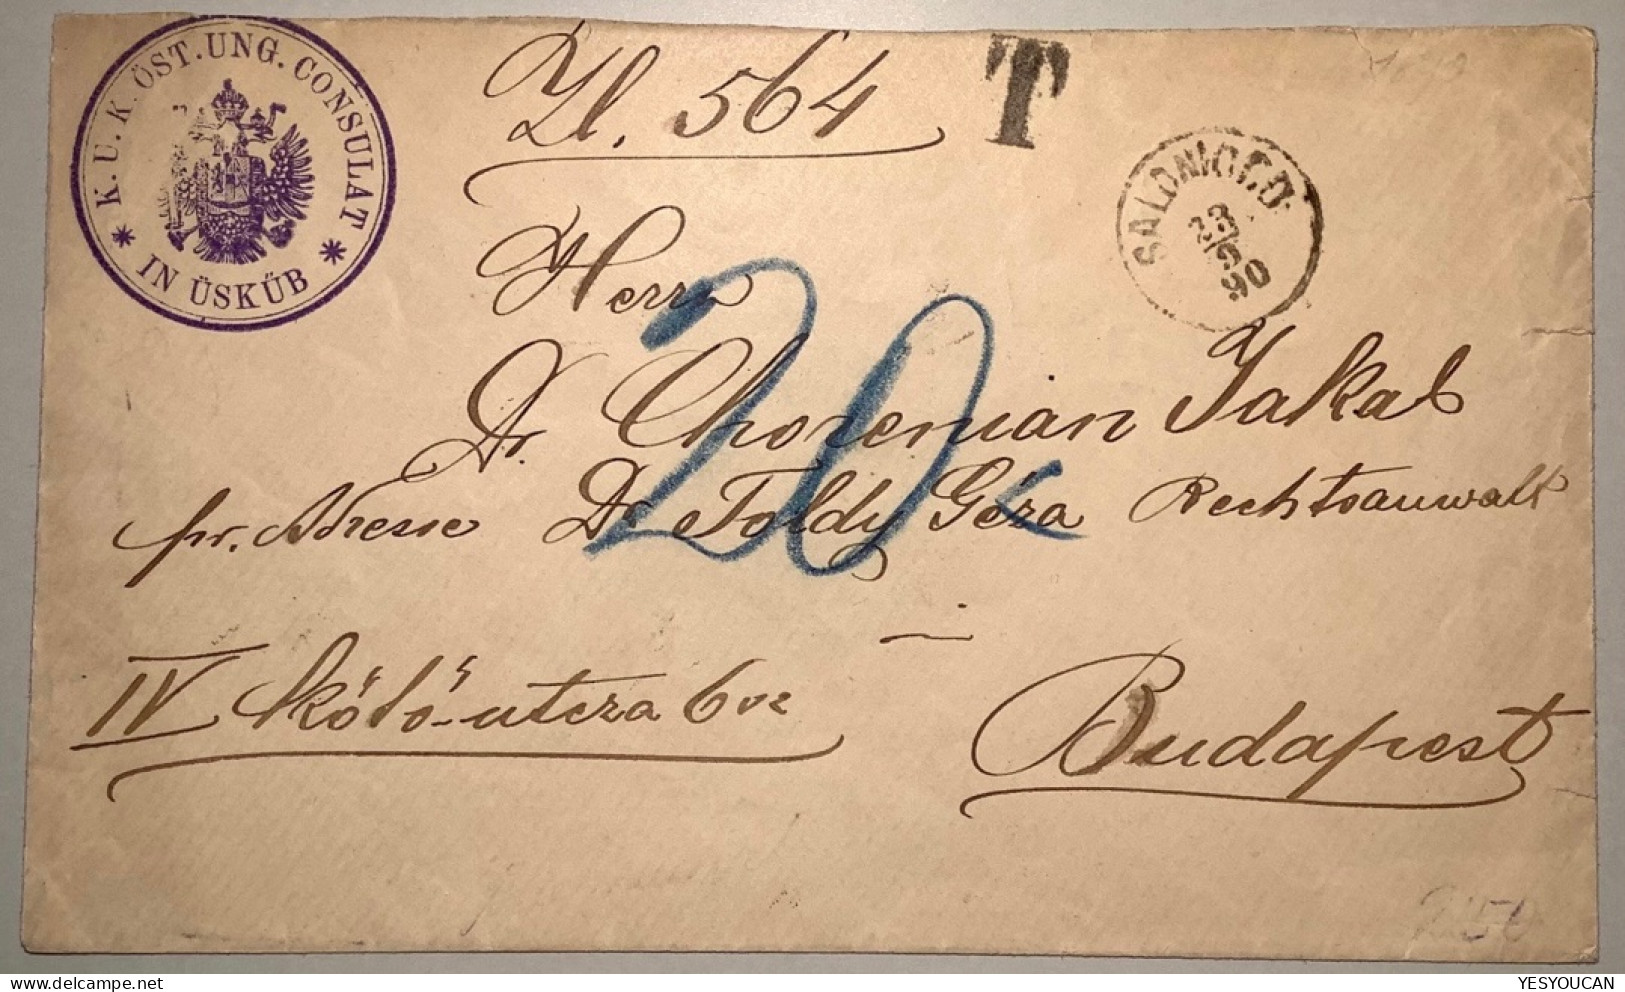 K. U. K. ÖST. UNG. CONSULAT
* IN ÜSKÜB *
Zl. 564
T
SALONICH
23/9
90
Herrn
20
Dr. Chorenian Jakab
pr. Adresse Dr Foldy Géza Rechtsanwalt
IV Kötő-utcza 6 sz
Budapest
250
YESYOUCAN